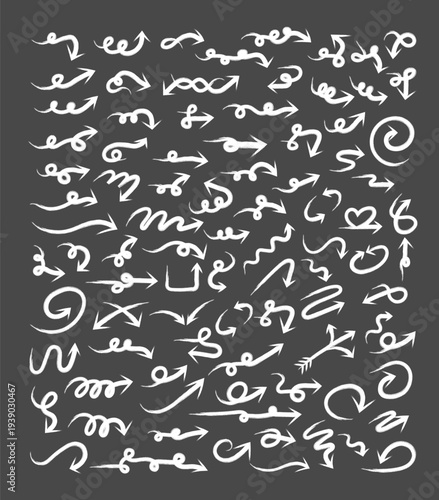 Adobe Stock | #1939030467